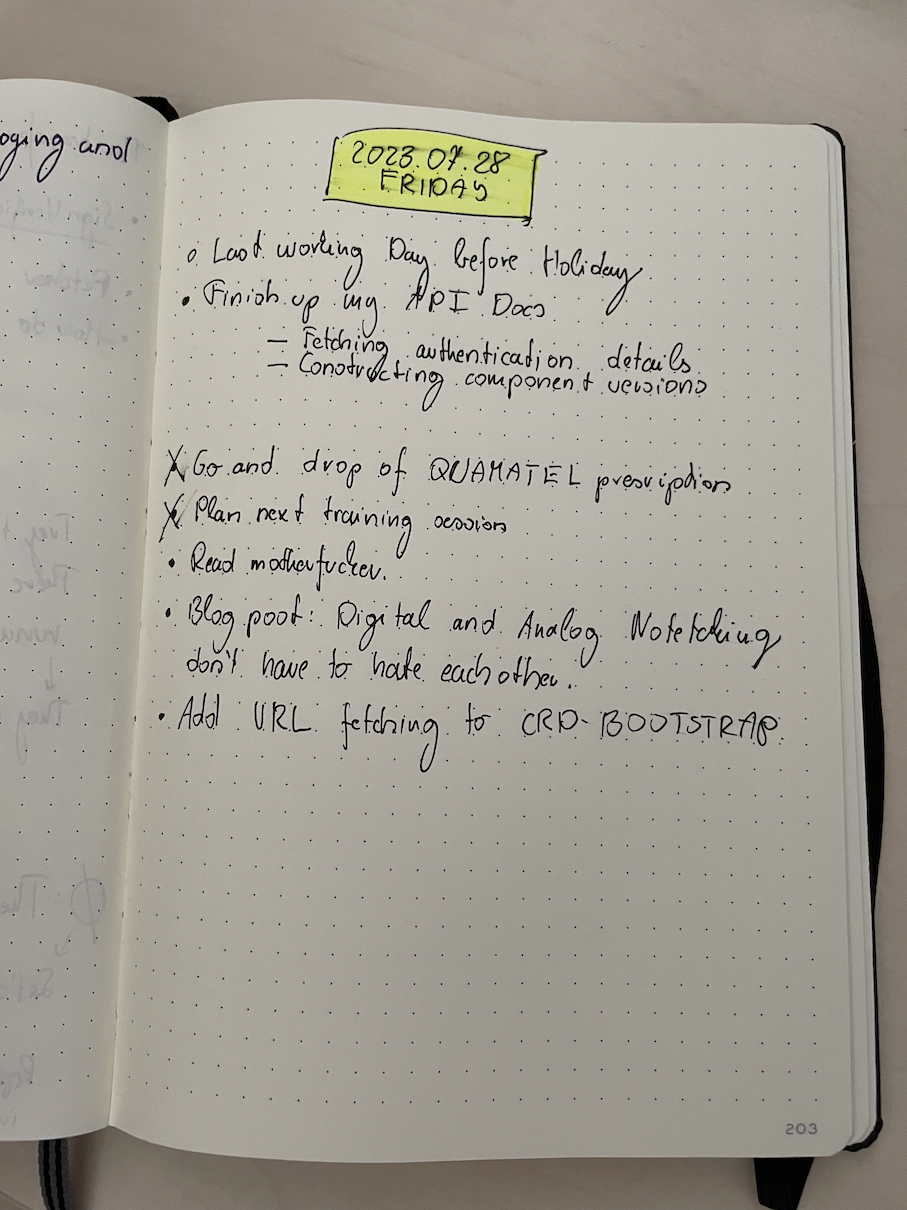 oging and
2023.07.28
FRIDAY
o Last working Day before Holiday
• Finish up my API Docs
— Fetching authentication details
— Constructing component versions
X Go and drop of QUAMATEL prescription
X Plan next training session
• Read motherfucker.
• Blog post: Digital and Analog Notetking
don't have to hate each other.
• Add URL fetching to CRD-BOOTSTRAP
203